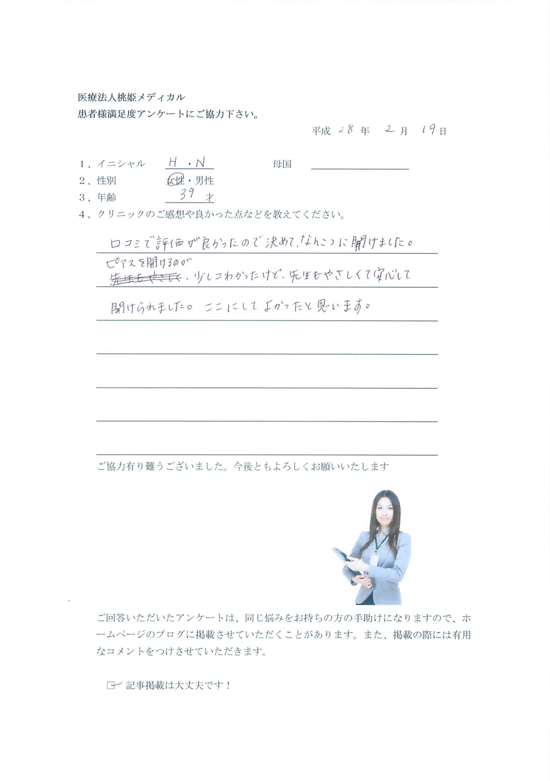 医療法人桃姫メディカル
患者様満足度アンケートにご協力下さい。
平成 28 年 2 月 19日
1、イニシャル H・N 母国
2、性別 女性・男性
3、年齢 39 才
4、クリニックのご感想や良かった点などを教えてください。
口コミで評価が良かったので決めて、なんこつに開けました。
ピアスを開けるのが
先生もやさしく、少しコわかったけど、先生もやさしくて安心して
開けられました。ここにしてよかったと思います。
ご協力有り難うございました。今後ともよろしくお願いいたします
ご回答いただいたアンケートは、同じ悩みをお持ちの方の手助けになりますので、ホ
ームページのブログに掲載させていただくことがあります。また、掲載の際には有用
なコメントをつけさせていただきます。
記事掲載は大丈夫です！